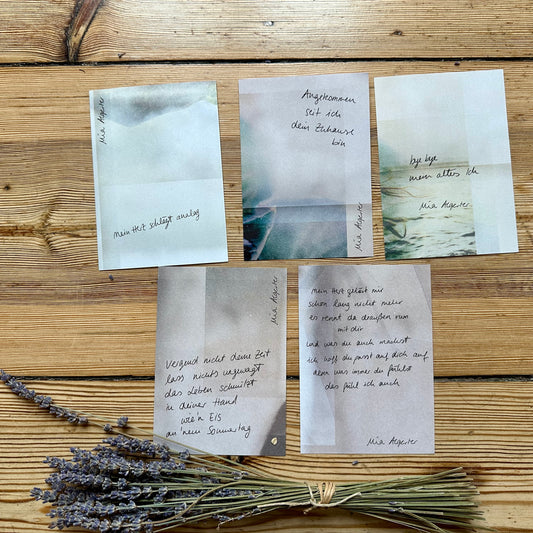 Mia Aegerter
mein Herz schlägt analog
Angekommen
seit ich
dein Zuhause
bin
Mia Aegerter
bye bye
mein altes Ich
Mia Aegerter
Vergeud nicht deine Zeit
lass nichts ungewagt
das Leben schmilzt
in deiner Hand
wie'n Eis
an 'nem Sommertag
Mia Aegerter
mein Herz gehört mir
schon lang nicht mehr
es rennt da draußen rum
mit dir
und was du auch machst
ich hoff du passt auf dich auf
denn was immer du fühlst
das fühl ich auch
Mia Aegerter